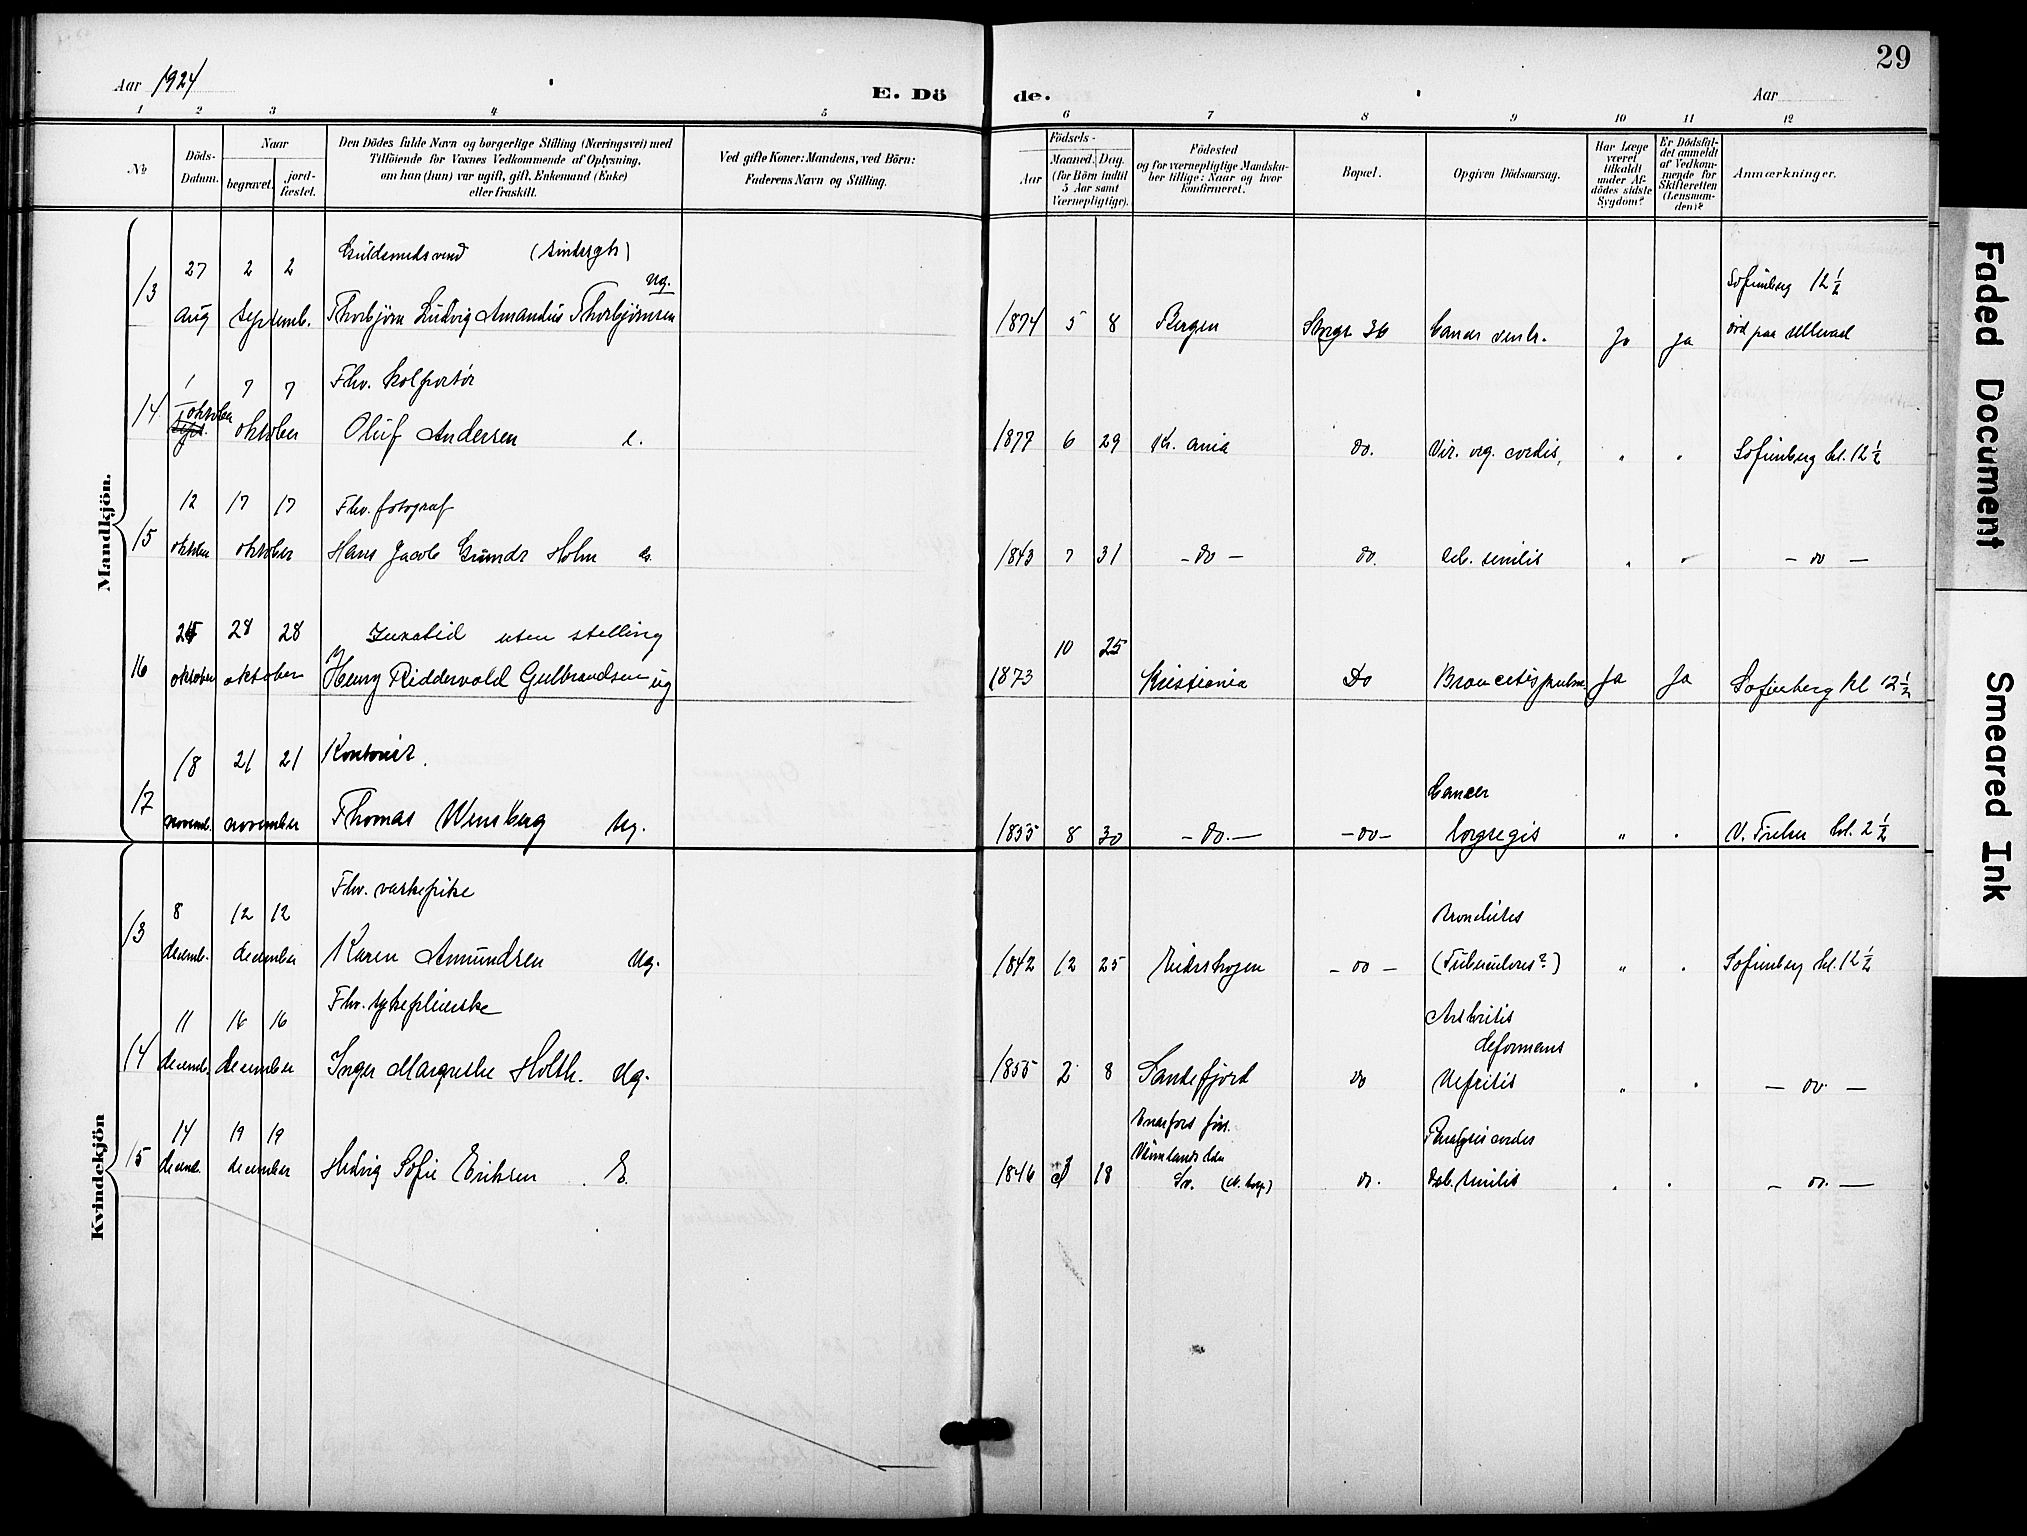 29
Aar 1924
E. Dö de.
Aar
1 2 3 4 5 6 7 8 9 10 11 12
No
Döds-Datum.
Naar
begravet.
jord-fæstet.
Den Dödes fulde Navn og borgerlige Stilling (Næringsvei) med
Tilföiende for Voxnes Vedkommende af Oplysning,
om han (hun) var ugift, gift, Enkemand (Enke)
eller fraskilt.
Ved gifte Koner: Mandens, ved Börn:
Faderens Navn og Stilling.
Födsels-
Aar
Maaned. Dag.
(for Börn indtil
5 Aar samt
Værnepligtige).
Födested
og for værnepligtige Mandska-
ber tillige: Naar og hvor
konfirmeret.
Bopæl.
Opgiven Dödsaarsag.
Har Læge
været
tilkaldt
under Af-
dödes sidste
Sygdom?
Er Dödsfal-
det anmeldt
af Vedkom-
mende for
Skifteretten
(Lensman-
den)?
Anmærkninger.
Mandkjön.
Guldsmedsvend
27 2 2 ug.
13 aug septemb. Thorbjörn Ludvig Amandus Thorbjörnsen 1874 5 8 Bergen Storgt 36 Cancer ventr. Ja ja Sofienberg 12½
död paa Ullevaal
1 7 7 Fhv. kolportör
14 sept. oktober oktober Oluf Andersen e. 1877 6 29 Kr.ania do. Vit. org. cordis, " " Sofienberg kl. 12½
12 17 17 Fhv. fotograf
15 oktober oktober Hans Jacob Grundt Holm e. 1843 7 31 - do - do. Deb. senilis " " - do -
28 28 Invalid uten stelling
16 oktober oktober Henry Riddervold Gulbrandsen ug 1873 10 25 Kristiania Do Ja Ja Sofienberg kl 12½
18 21 21 Kontorist.
17 novemb. november Thomas Wensberg Ug. 1855 8 30 - do. - - do - Cancer
" " V. Frelser kl. 2½
Kvindekjön
8 12 12 Fhv. vaskepike
13 decemb. december Karen Amundsen Ug. 1842 12 25 - do - Bronchites
(Tuberculoses?) " " Sofienberg kl. 12½
11 16 16 Fhv. sykepleierske
14 decemb. december Inger Margrethe Holth. Ug. 1855 2 8 Sandefjord do Arthritis
deformans
Nefritis " " - do. -
14 19 19
15 decemb. december Hedvig Sofie Eriksen E. 1846 18 Vermlands
Sv. do. Paralysis cordis
Deb. senilis " " - do. -
Faded Document
Smeared Ink